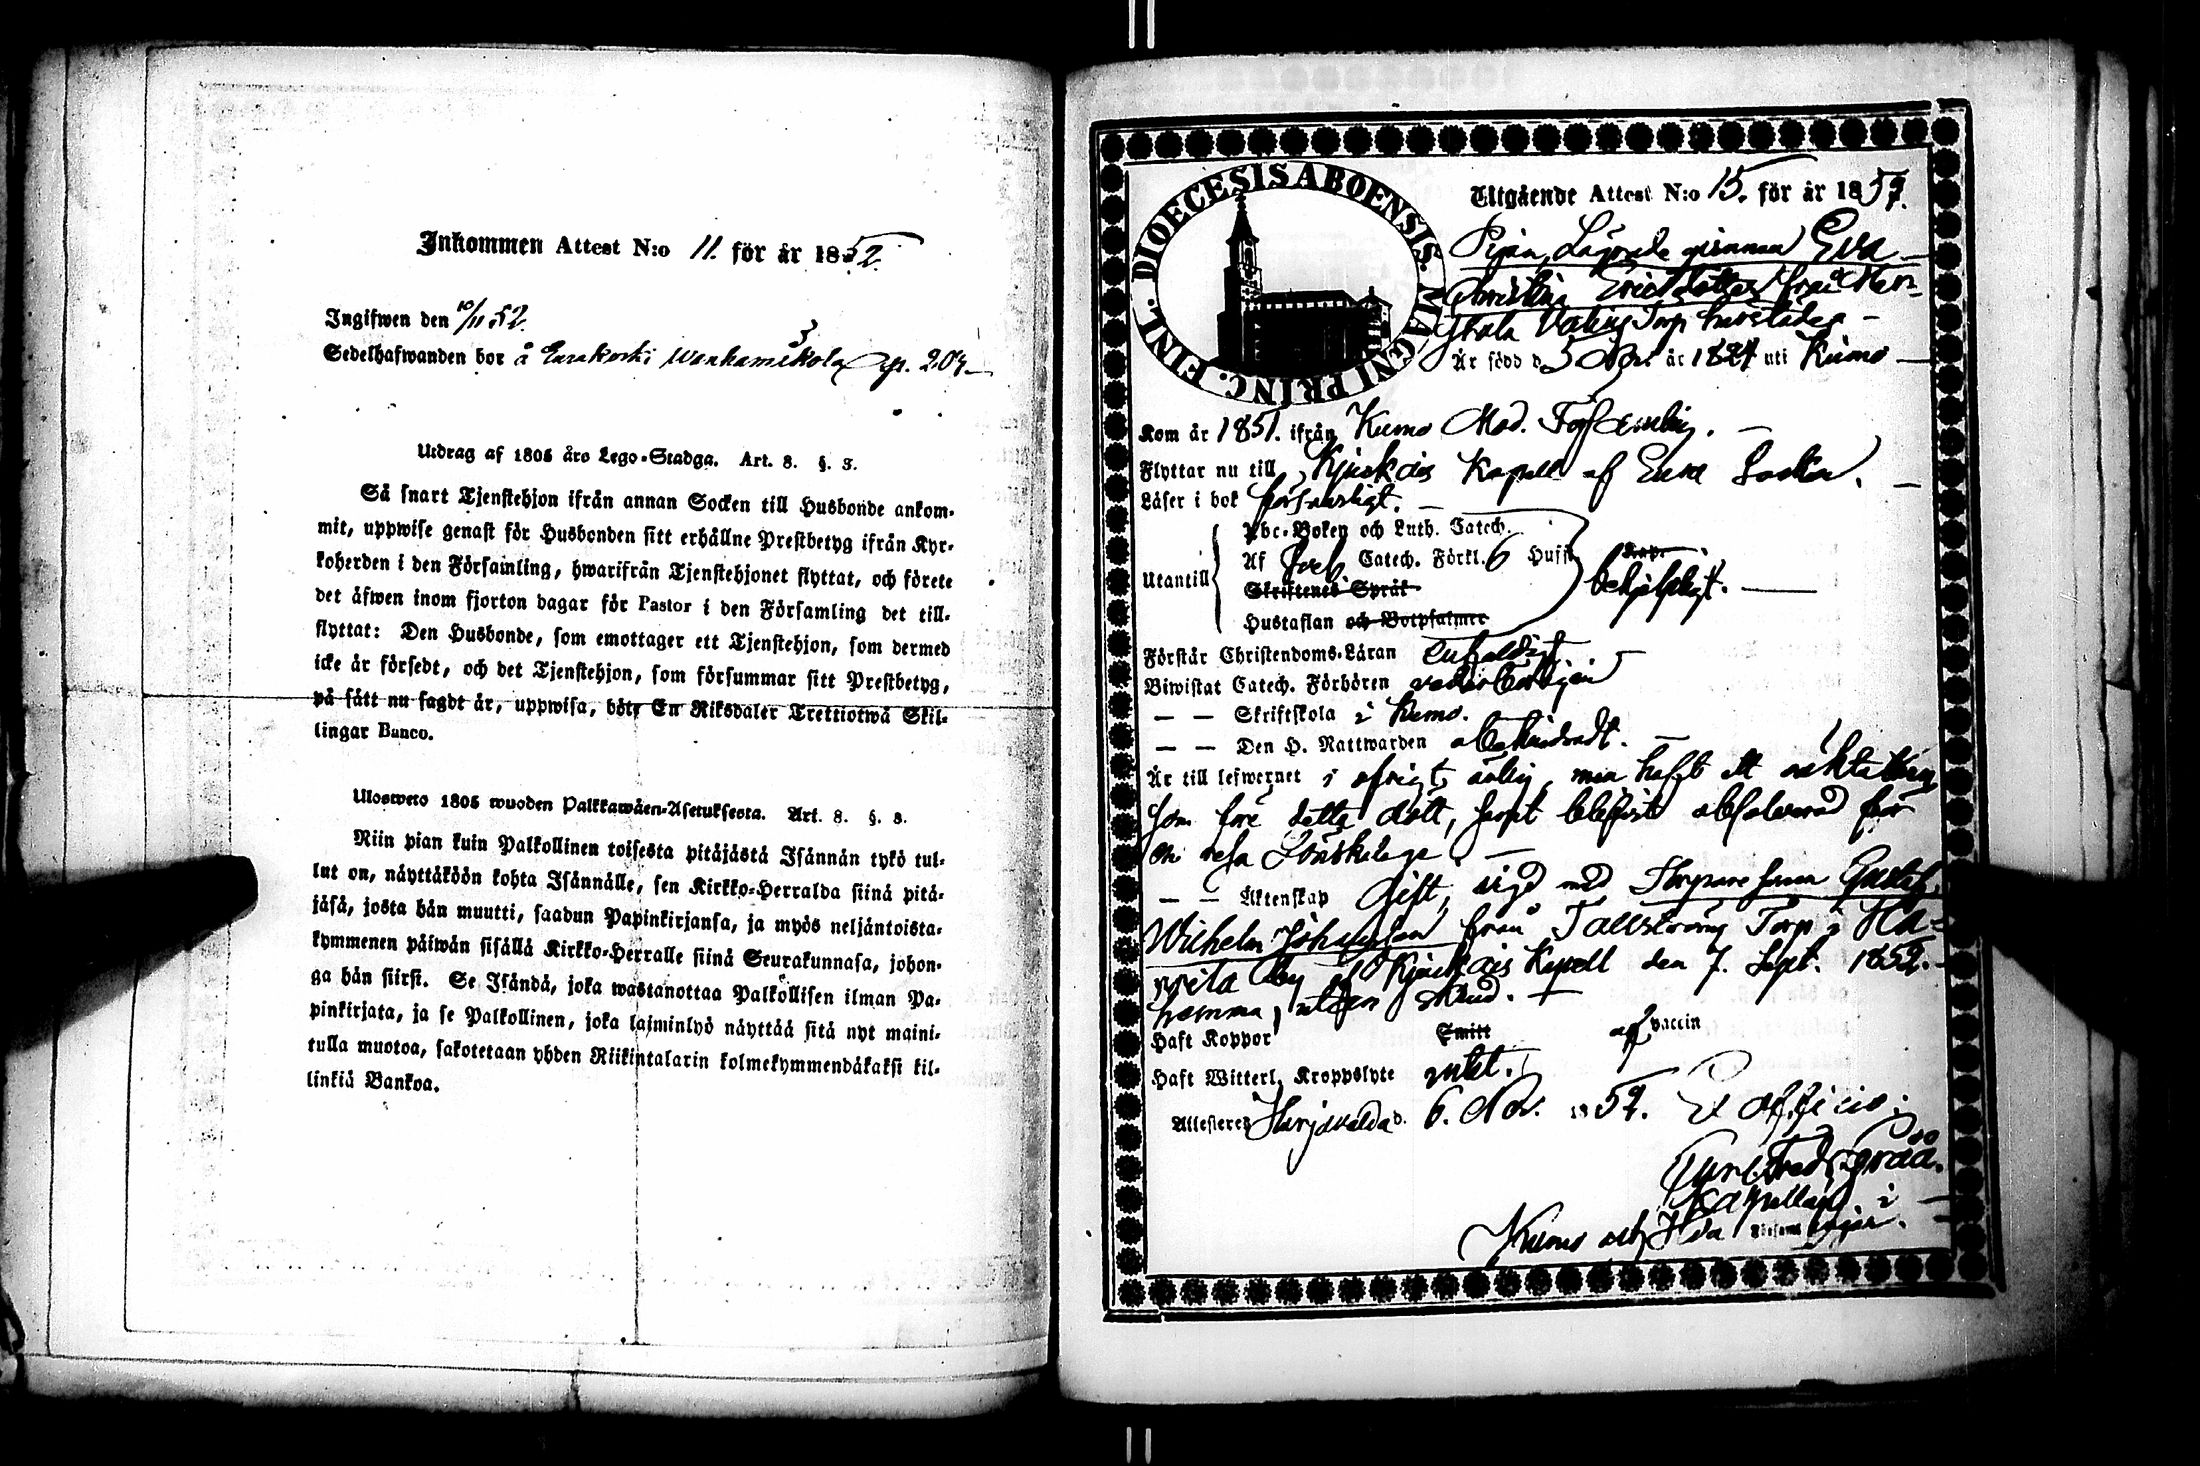 Inkommen Attest N:o 11. för år 1852.
Ingifwen den 10/11 52.
Sedelhafwanden bor å Eurakoski Wanhamikola p. 204
Utdrag af 1805 års Lego-Stadga. Art. 8. §. 3.
Så snart Tjenstehjon ifrån annan Socken till Husbonde ankom-
mit, uppwise genast för Husbonden sitt erhållne Prestbetyg ifrån Kyr-
koherden i den Församling, hwarifrån Tjenstehjonet flyttat, och förete
det äfwen inom fjorton dagar för Pastor i den Församling det till-
flyttat: Den Husbonde, som emottager ett Tjenstehjon, som dermed
icke är försedt, och det Tjenstehjon, som försummar sitt Prestbetyg,
på sätt nu sagdt är, uppwisa, böte En Riksdaler Trettiotwå Skil-
lingar Banco.
Ulosweto 1805 wuoden Palkkawäen-Asetuksesta. Art. 8. §. 3.
Niin pian kuin Palkollinen toisesta pitäjästä Isännän tykö tul-
lut on, näyttäköön kohta Isännälle, sen Kirkko-Herralda siinä pitä-
jäsä, josta hän muutti, saadun Papinkirjansa, ja myös neljäntoista-
kymmenen päiwän sisällä Kirkko-Herralle siinä Seurakunnasa, johon-
ga hän siirsi. Se Isändä, joka wastanottaa Palkollisen ilman Pa-
pinkirjata, ja se Palkollinen, joka laiminlyö näyttää sitä nyt maini-
tulla muotoa, sakotetaan yhden Riikintalarin kolmekymmendäkaksi kil-
linkiä Bankoa.
DIOECESIS ABOENSIS. MAGNI PRINC. FINL.
Utgående Attest N:o 15. för år 1852.
Pigan, Lägrade qvinnan Eva
Christina Ericsdotter från
Torp
Är född d. 5 år 1824 uti Kumo
Kom år 1851. ifrån Kumo Mod. Församling.
Flyttar nu till Kjukais Kapell af Eura Socken.
Läser i bok försvarligt.
Abc-Boken och Luth. Catech.
Utantill Af Catech. Förkl. 6 Husst.
Skriftenes Språk behjelpligt.
Hustaflan och Botpsalmer
Förstår Christendoms-Läran enfaldigt
Biwistat Catech. Förhören vederbörligen
— — Skriftskola i Kumo.
— — Den H. Nattwarden obehindradt.
Är till lefwernet i öfrigt ärlig, men haft ett oäkta barn
som före detta dött, samt blifvit absolverad för
en resa Lönskaläge.
— — Äktenskap Gift, vigd med Torpare sonen Gustaf
Wilhelm Johansson från Tallström Torp i Ha-
by af Kjukais Kapell den 7. Sept. 1852.
hemma, utan
Haft Koppor Smitt af Vaccin
Haft Witterl. Kroppslyte intet.
Attesteres Harjavalda d. 6. Nov. 1852. Ex officio:
Kapellan i
Kumo och församlingar.